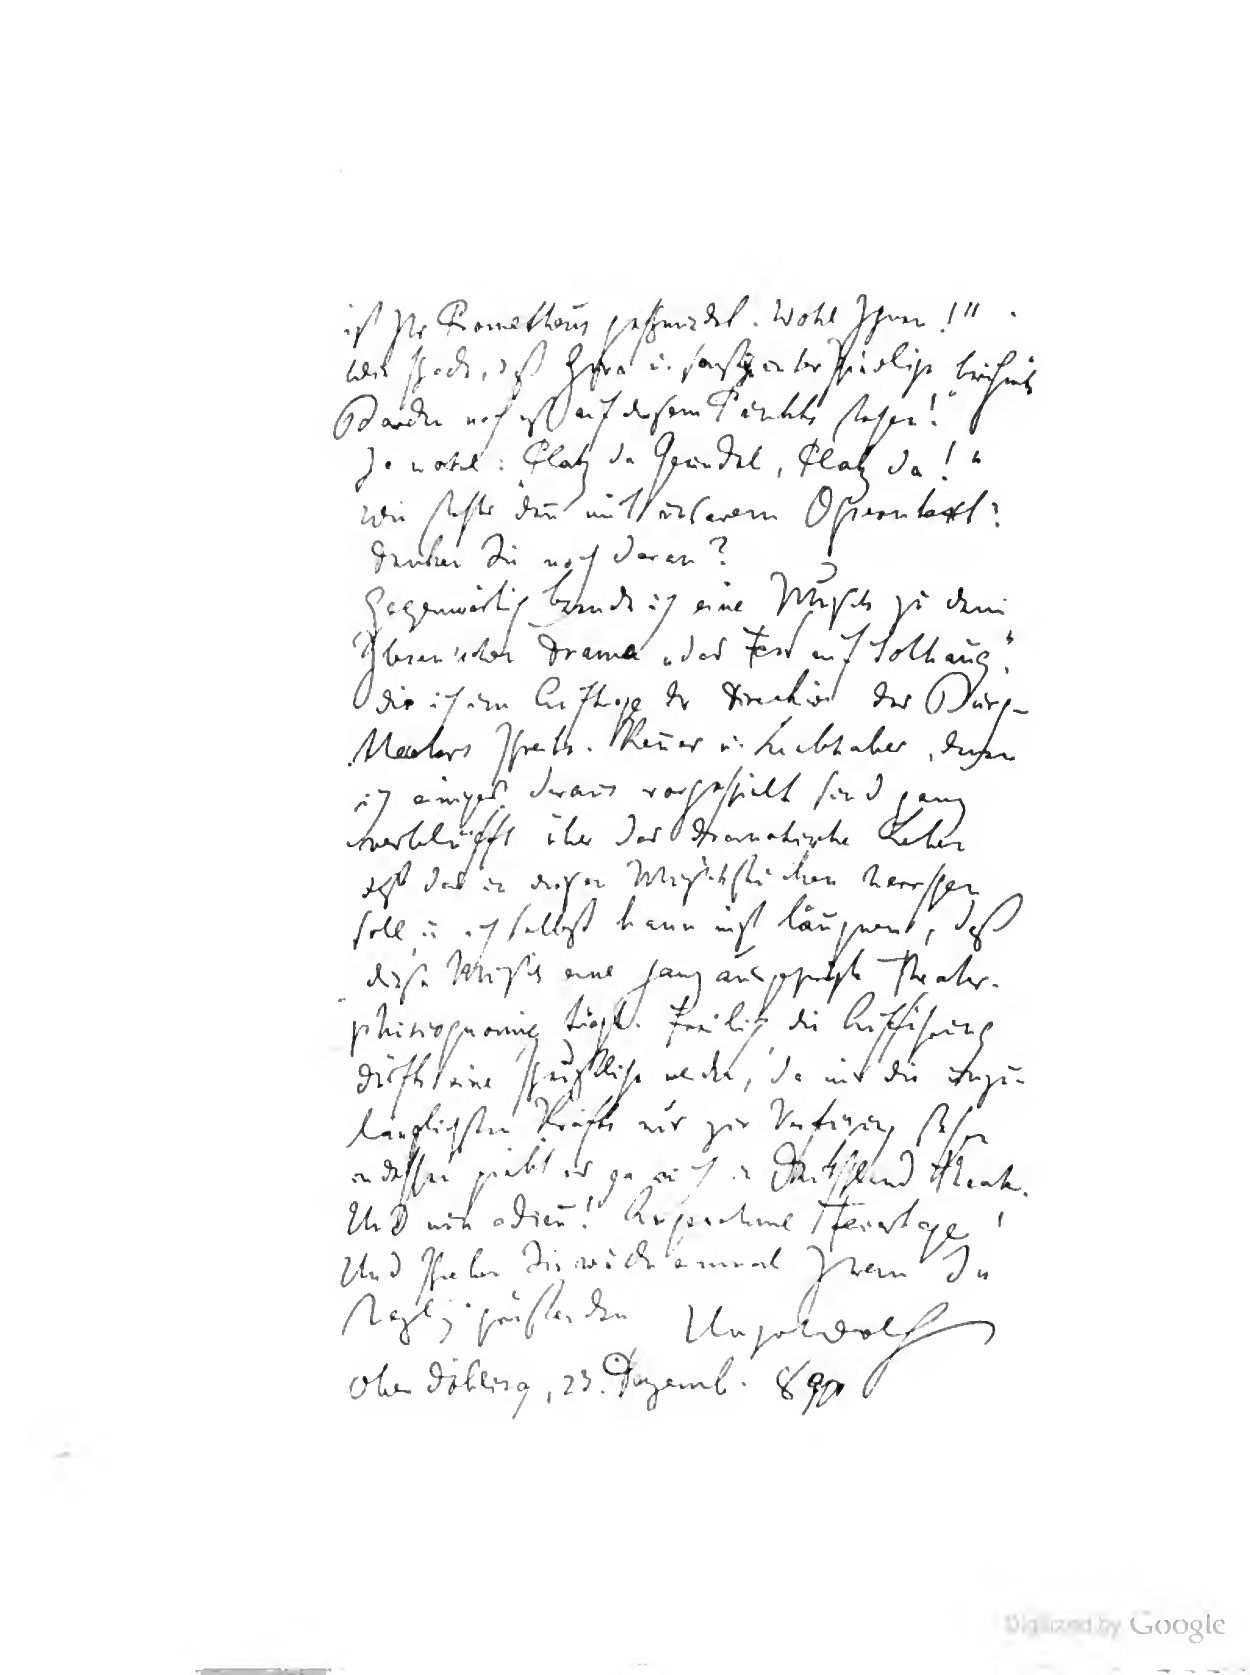 ist Ihr Prometheus geschmiedet. Wohl Ihnen!"
wie schade, daß Ihre u. sonstige
Barden noch nicht auf diesem Punkte stehen!
Ja wohl: "Platz da Gesindel, Platz da!"
Wie steht's denn mit unserem Operntext?
Denken Sie noch daran?
Gegenwärtig beende ich eine Musik zu dem
Ibsen'schen Drama „das Fest auf Solhaug",
die ich im Auftrage der Direktion des Burg-
theaters schreibe. Kenner u. Liebhaber, denen
ich einiges daraus vorgespielt sind ganz
verblüfft über das dramatische Leben
das in diesen Musikstücken herrschen
soll u. ich selbst kann nicht läugnen, daß
diese Musik eine ganz ausgeprägte Theater-
phisiognomie trägt. Freilich, die Aufführung
dürfte eine scheußliche werden, da mir die unzu-
länglichsten Kräfte nur zur Verfügung stehen
indessen giebt es ja auch in Deutschland Theater.
Und nun adieu! Angenehme Feiertage!
Und schreiben Sie wieder einmal Ihrem Sie
herzlich grüßenden Hugo Wolf
Ober Döbling, 23. Dezemb. 890
Digitized by Google